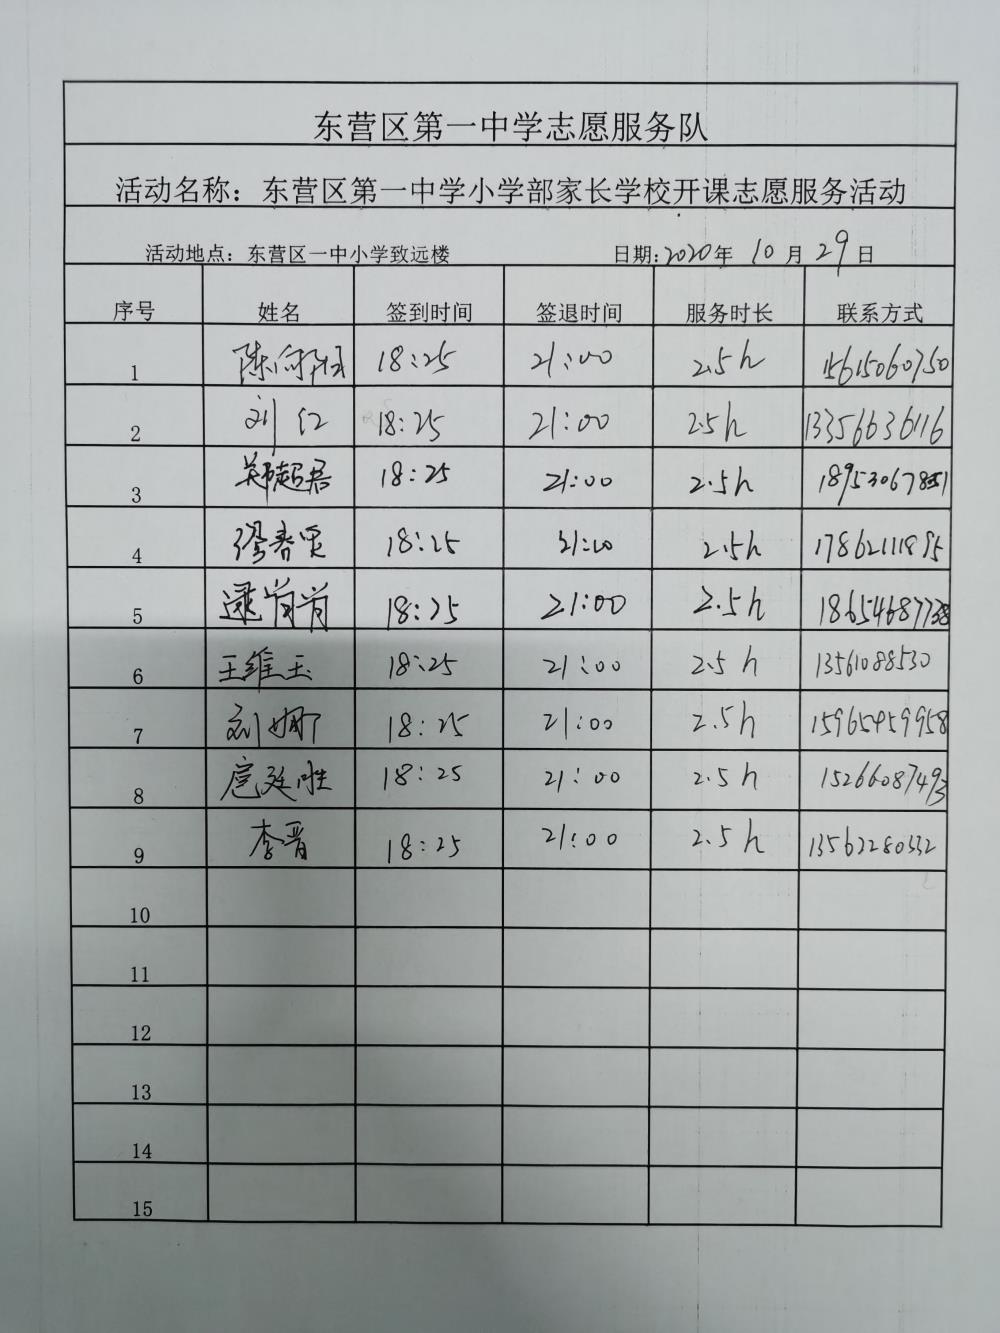 东营区第一中学志愿服务队
活动名称：东营区第一中学小学部家长学校开课志愿服务活动
活动地点：东营区一中小学致远楼 日期:2020年 10月 29日
序号 姓名 签到时间 签退时间 服务时长 联系方式
1 18:25 21:00 2.5h 15615060750
2 刘红 18:25 21:00 2.5h 13356636116
3 郑超君 18:25 21:00 2.5h
4 缪春灵 18:25 21:00 2.5h 17862111895
5 逯肖肖 18:25 21:00 2.5h 18654687738
6 王维玉 18:25 21:00 2.5h 13561088530
7 刘娜 18:25 21:00 2.5h 15965459958
8 扈廷胜 18:25 21:00 2.5h 15266087493
9 李晋 18:25 21:00 2.5h 13562280332
10
11
12
13
14
15